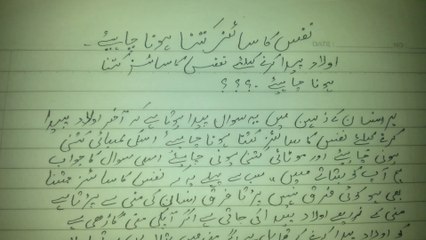 نفس کا سائز کتنا ہونا چاہیئے۔
اولاد پیدا کرنے کیلئے نفس کا سائز کتنا
ہونا چاہیئے ۔؟؟؟
ہر انسان کے ذہن میں یہ سوال پیدا ہوتا ہے کہ آخر اولاد پیدا
کرنے کیلئے نفس کا سائز کتنا ہونا چاہیئے اسکی لمبائی کتنی
ہونی چاہیئے اور موٹائی کتنی ہونی چاہیئے اسی سوال کا جواب
آج آپ کو بتاتے ہیں سب سے پہلے یہ نفس کا سائز جتنا
بھی ہو کوئی فرق نہیں پڑتا فرق انسان کی منی سے پڑتا ہے
منی کے ذریعے اولاد پیدا کی جاتی ہے اگر آپکی منی گاڑھی ہے
تو اولاد پیدا کرنے کے